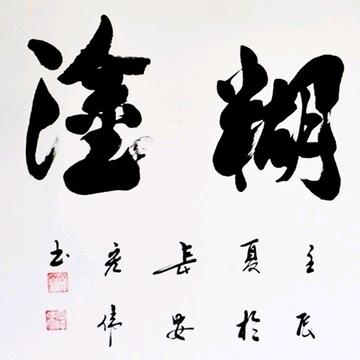 糊塗
壬辰
夏於
長安
彥偉
书